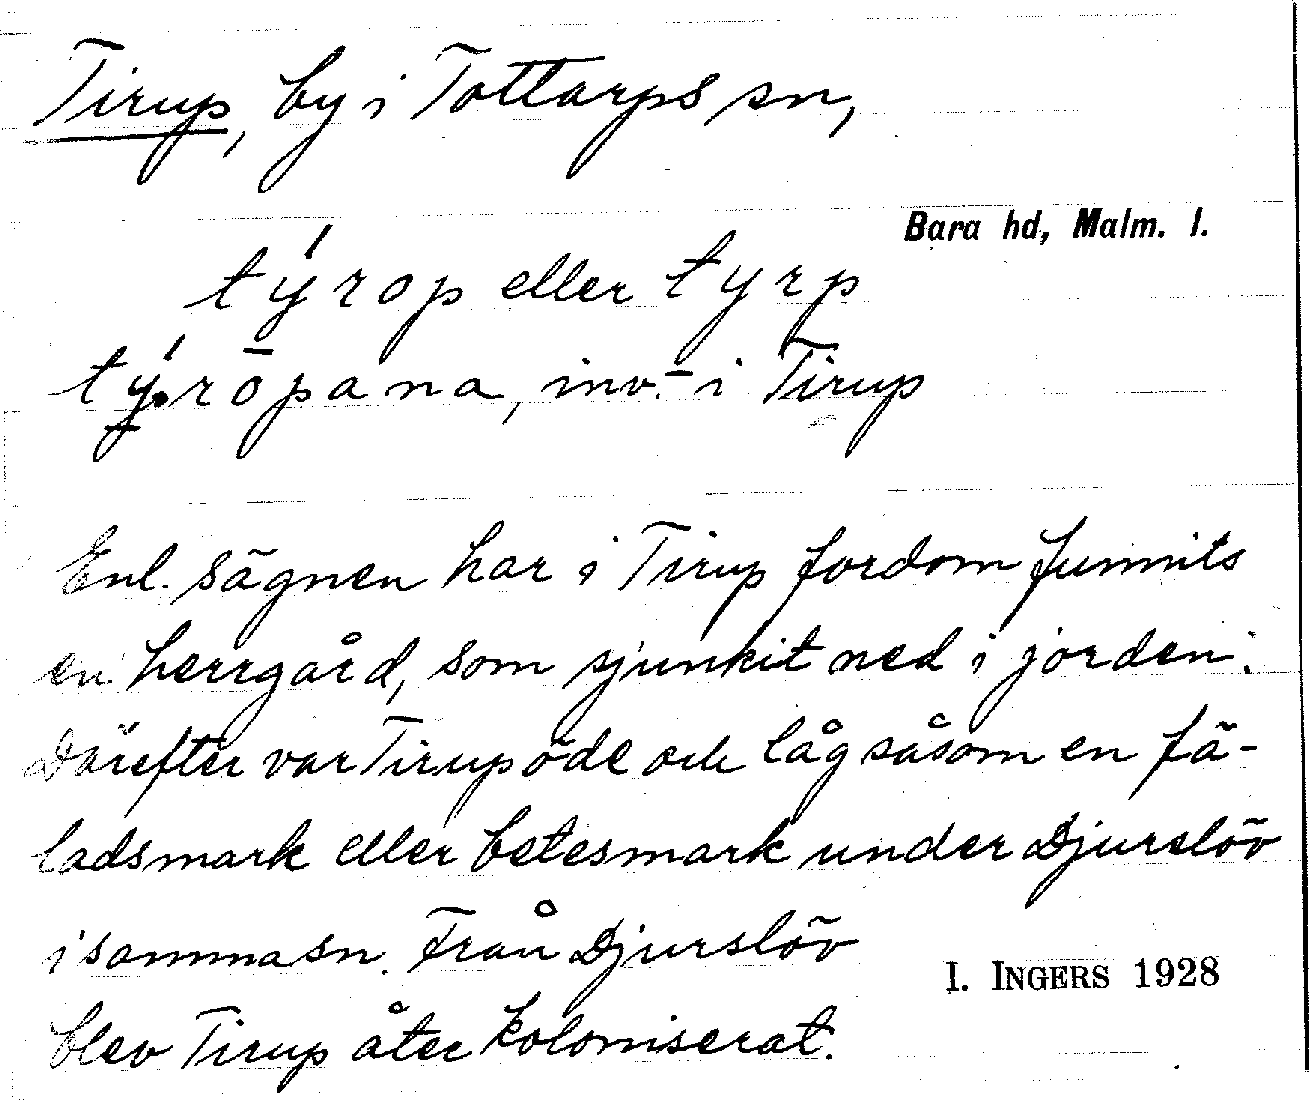 Tirup, by i Tottarps sn,
Bara hd, Malm. l.
týrop eller tyrp
týröpana, inv. i Tirup
Enl. sägnen har i Tirup fordom funnits
en herrgård, som sjunkit ned i jorden.
Därefter var Tirup öde och låg såsom en fä-
ladsmark eller betesmark under Djurslöv
i samma sn. Från Djurslöv
I. INGERS 1928
blev Tirup åter koloniserat.